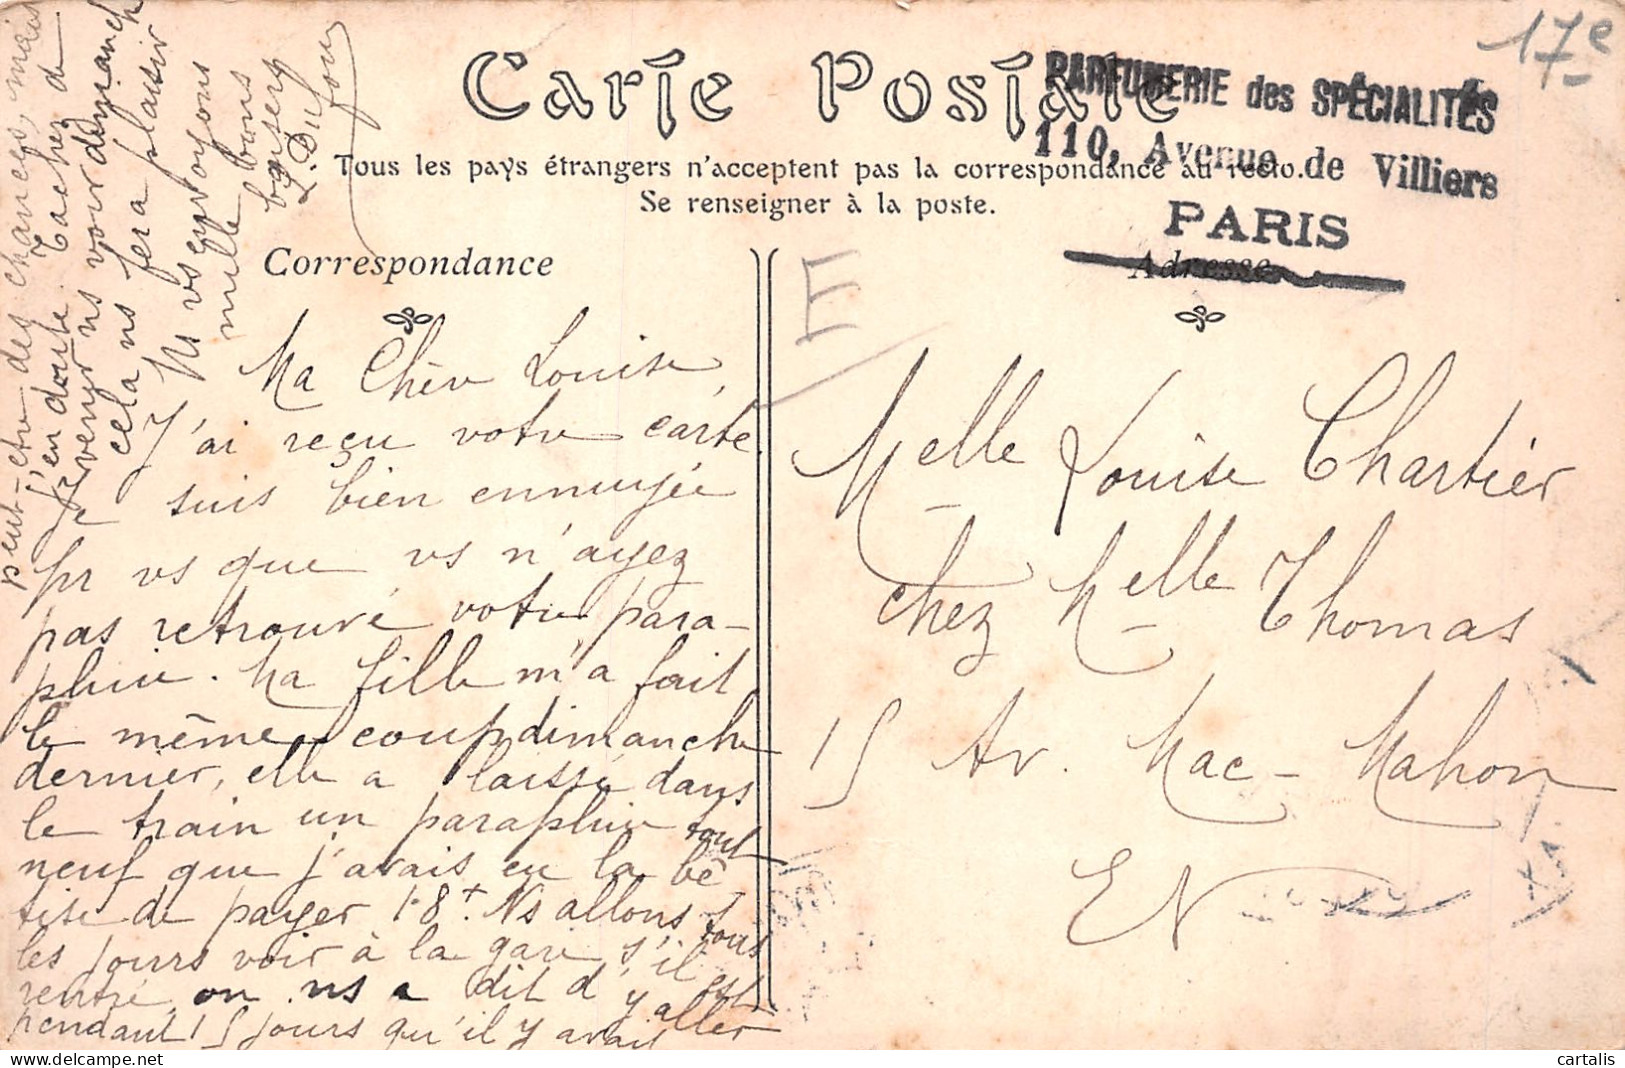 Carte Postale
Tous les pays étrangers n'acceptent pas la correspondance au recto.
Se renseigner à la poste.
PARFUMERIE des SPÉCIALITÉS
110, Avenue de Villiers
PARIS
17e
Correspondance
Adresse
E
Ma Chère Louise,
J'ai reçu votre carte
suis bien ennuyée
pr vs que vs n'ayez
pas retrouvé votre para-
pluie. Ma fille m'a fait
le même coup dimanche
dernier, elle a laissé dans
le train un parapluie tout
neuf que j'avais eu la bê
tise de payer 18f. Ns allons tous
les jours voir à la gare s'il est
rentré, on ns a dit d'y aller
pendant 15 jours qu'il y avait
peut-être des chances, mais
j'en doute. Tachez de
venir ns voir dimanch
cela ns fera plaisir
Ns vs envoyons
mille bons
baisers
L. Dufour
Melle Louise Chartier
chez Melle Thomas
15 Av. Mac-Mahon
EV
cartalis